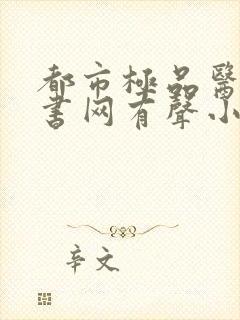 都市極品醫
書网有聲小
辛文